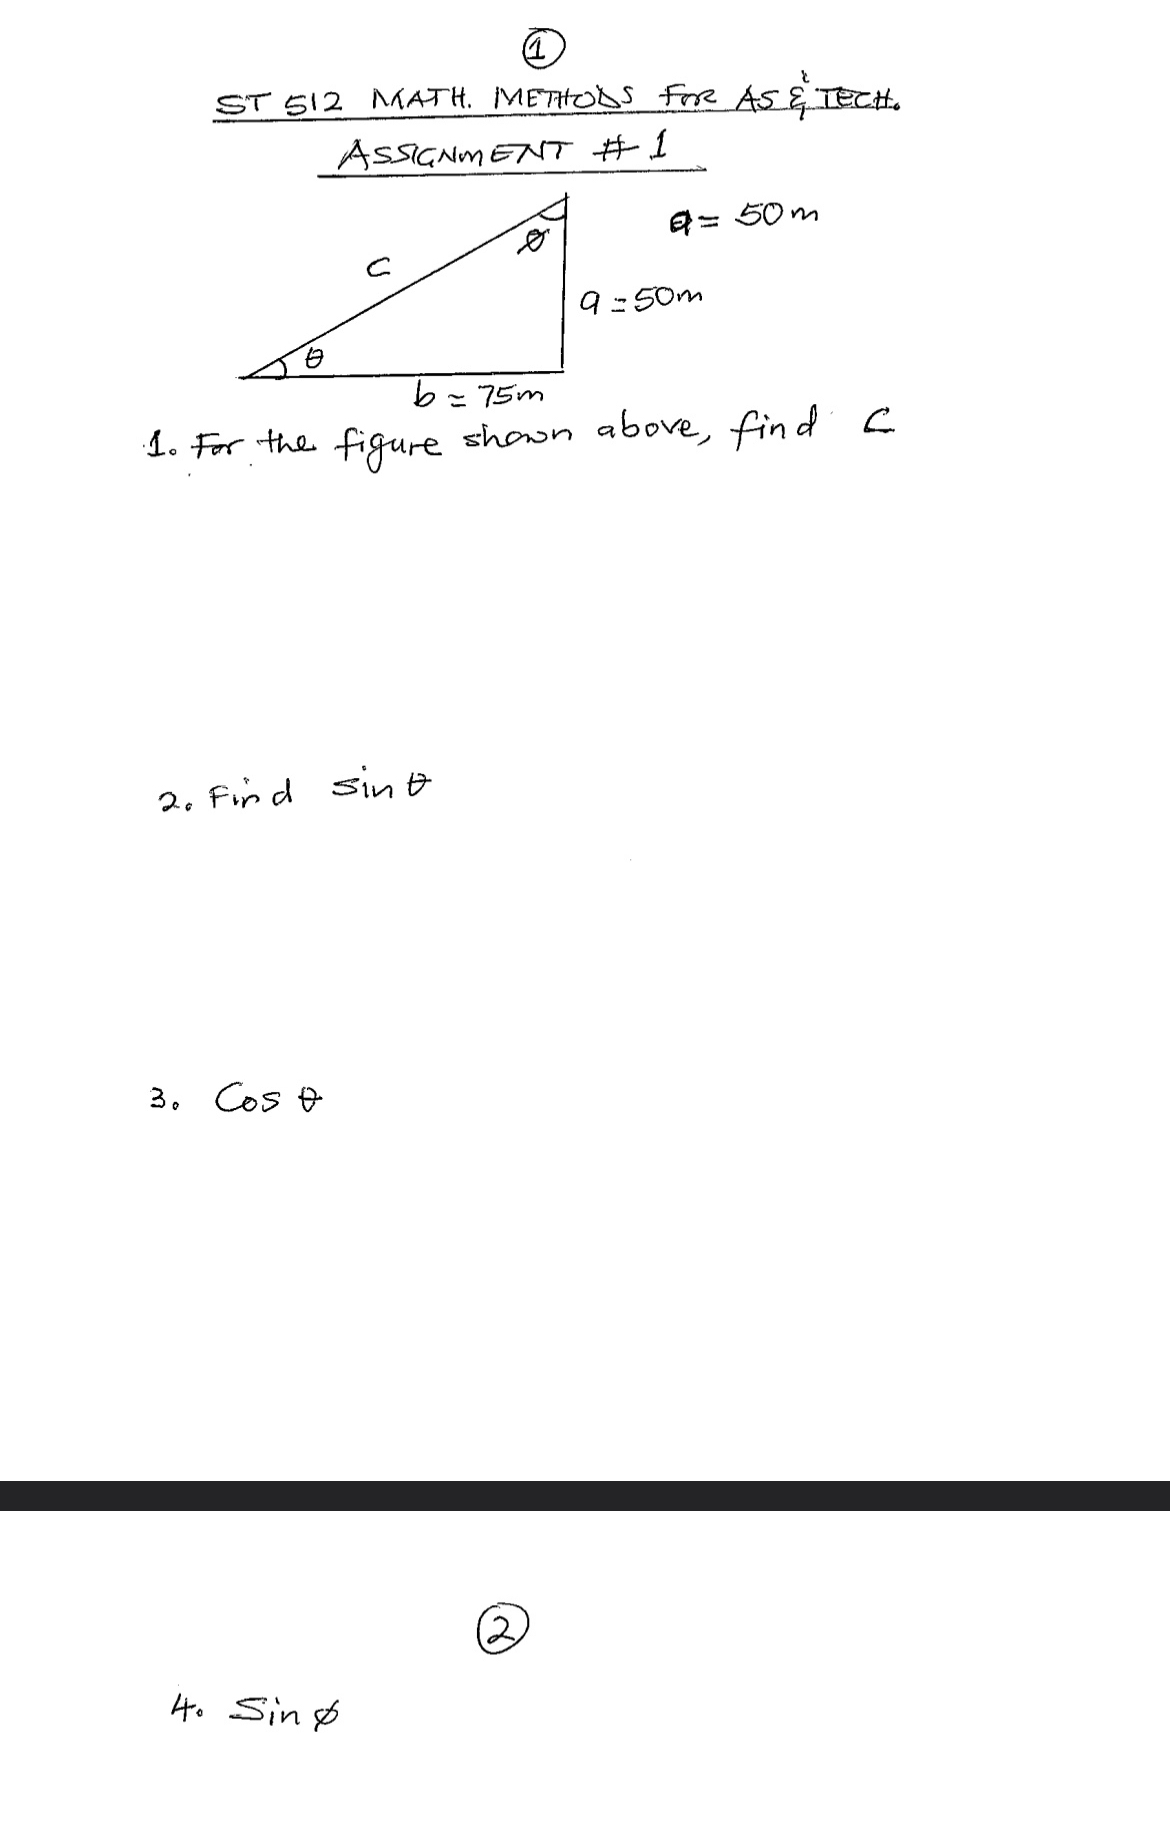 1
ST 512 MATH. METHODS FOR AS & TECH.
ASSIGNMENT # 1
a = 50 m
c
φ
a = 50m
θ
b = 75m
1. For the figure shown above, find C
2. Find sin θ
3. Cos θ
2
4. Sin φ